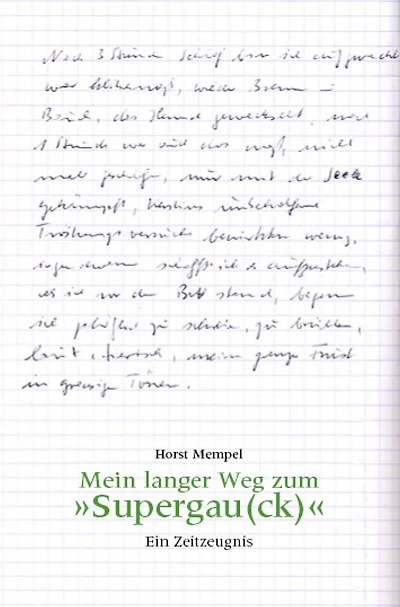 Nach 3 Stunden Schlaf bin ich aufgewacht
war klitschnaß, wieder Brennen i
Bauch, das Hemd gewechselt, nach
1 Stunde war auch das naß, nicht
mehr geschlafen, nur mit der Seele
gekämpft,
Tröstungsversuche bewirkten wenig,
irgendwann schaffte ich es aufzustehen,
als ich vor dem Bett stand, begann
ich plötzlich zu schreien, zu brüllen,
laut, tierisch, meinen ganzen Frust
in grausigen Tönen.
Horst Mempel
Mein langer Weg zum
»Supergau(ck)«
Ein Zeitzeugnis